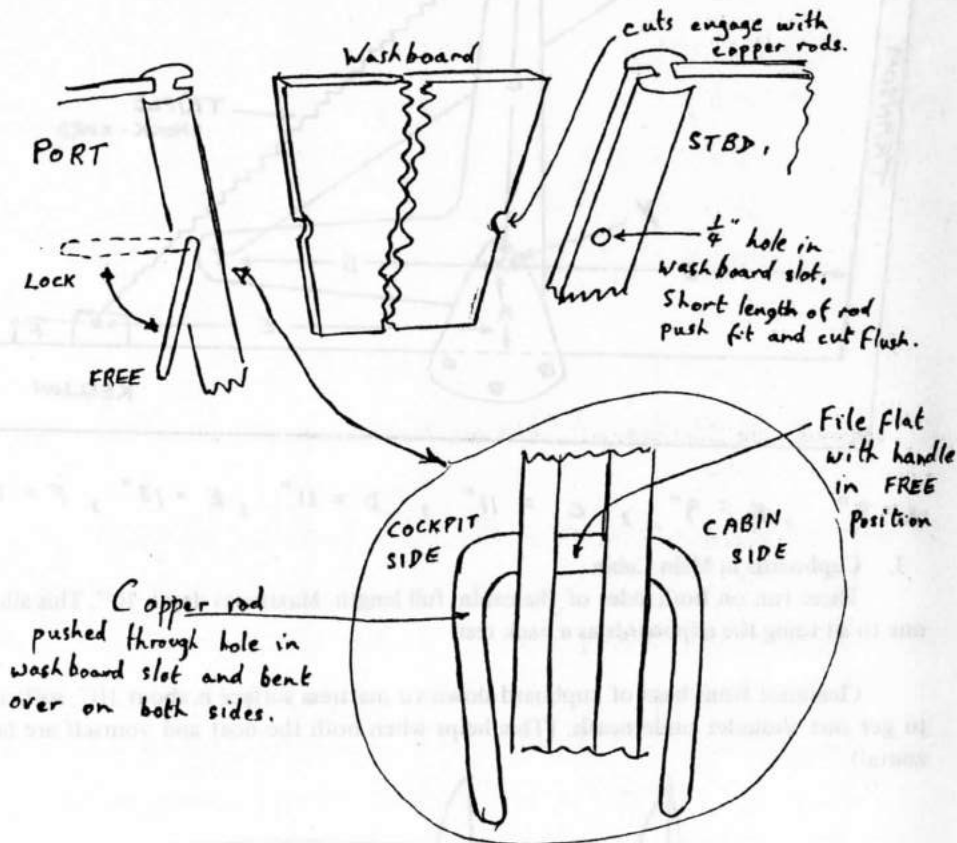 Washboard
cuts engage with
copper rods.
PORT
STBD,
LOCK
FREE
1/4" hole in
washboard slot.
Short length of rod
push fit and cut flush.
File flat
with handle
in FREE
position
COCKPIT
SIDE
CABIN
SIDE
Copper rod
pushed through hole in
washboard slot and bent
over on both sides.